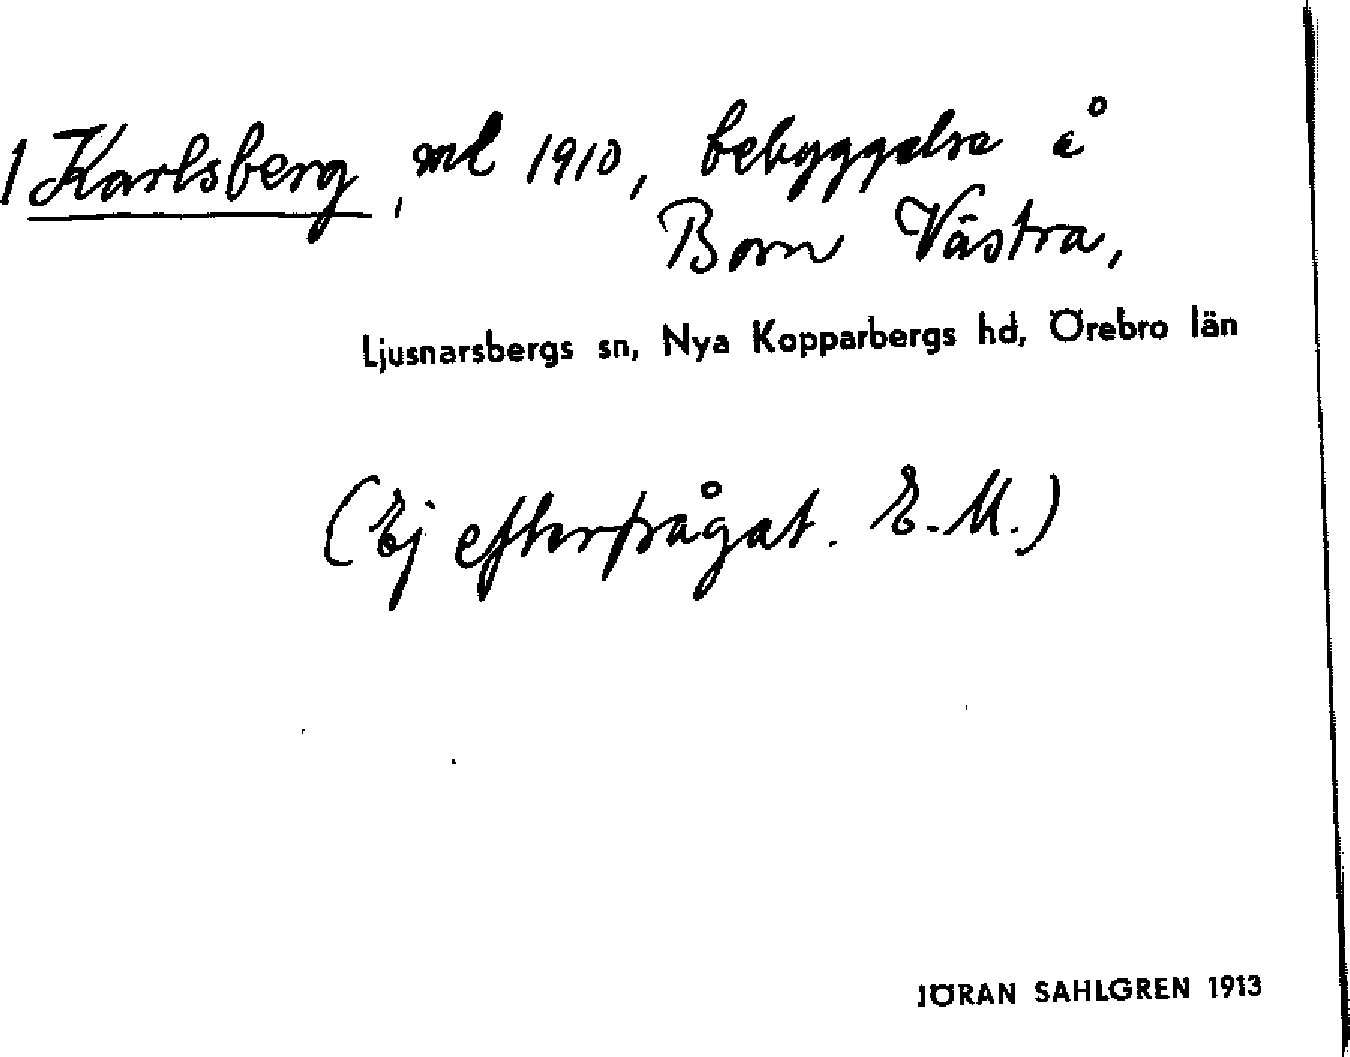 1 Karlsberg, ml 1910, bebyggelse å
Born Västra,
Ljusnarsbergs sn, Nya Kopparbergs hd, Örebro län
(Ej efterfrågat. E.M.)
JÖRAN SAHLGREN 1913